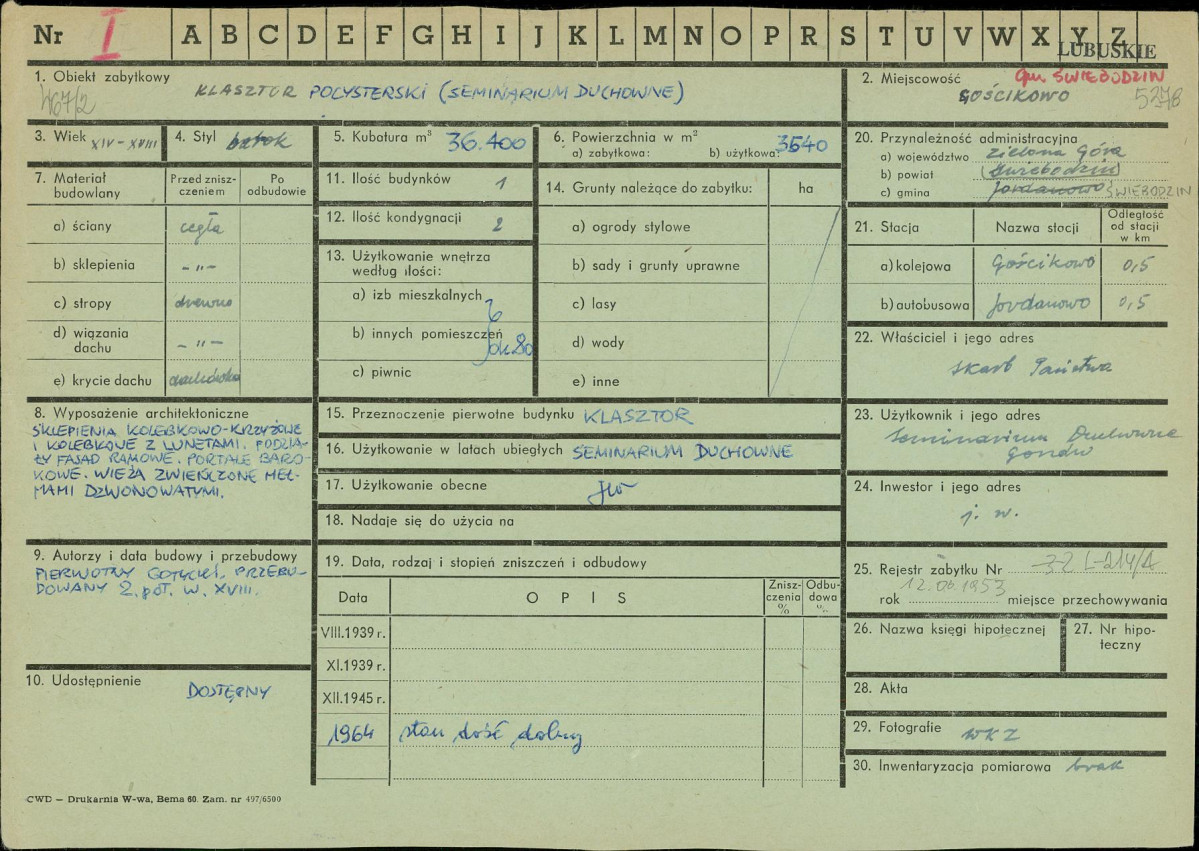 Nr I A B C D E F G H I J K L M N O P R S T U V W X Y Z
LUBUSKIE
1. Obiekt zabytkowy
467/2
KLASZTOR POCYSTERSKI (SEMINARIUM DUCHOWNE)
2. Miejscowość
gm. ŚWIEBODZIN
GOŚCIKOWO
3. Wiek XIV – XVIII
4. Styl barok
5. Kubatura m³ 36.400
6. Powierzchnia w m²
a) zabytkowa: b) użytkowa: 3540
7. Materiał budowlany
Przed znisz-
czeniem
Po
odbudowie
a) ściany cegła
b) sklepienia – „ –
c) stropy drewno
d) wiązania
dachu – „ –
e) krycie dachu dachówka
8. Wyposażenie architektoniczne
SKLEPIENIA KOLEBKOWO-KRZYŻOWE
I KOLEBKOWE Z LUNETAMI. PODZIA-
ŁY FASAD RAMOWE. PORTALE BARO-
KOWE. WIEŻA ZWIEŃCZONE HEŁ-
MAMI DZWONOWATYMI.
9. Autorzy i data budowy i przebudowy
PIERWOTNY GOTYCKI, PRZEBU-
DOWANY 2. poł. W. XVIII.
10. Udostępnienie
DOSTĘPNY
11. Ilość budynków 1
12. Ilość kondygnacji 2
13. Użytkowanie wnętrza
według ilości:
a) izb mieszkalnych
b) innych pomieszczeń
ok 80
c) piwnic
14. Grunty należące do zabytku: ha
a) ogrody stylowe
b) sady i grunty uprawne
c) lasy
d) wody
e) inne
15. Przeznoczenie pierwotne budynku KLASZTOR
16. Użytkowanie w latach ubiegłych SEMINARIUM DUCHOWNE
17. Użytkowanie obecne
18. Nadaje się do użycia na
19. Data, rodzaj i stopień zniszczeń i odbudowy
Data OPIS Znisz-
czenia
% Odbu-
dowa
%
VIII.1939 r.
XI.1939 r.
XII.1945 r.
1964 stan dość dobry
20. Przynależność administracyjna
a) województwo Zielona Góra
b) powiat (Świebodzin)
c) gmina Jordanowo ŚWIEBODZIN
21. Stacja Nazwa stacji Odległość
od stacji
w km
a) kolejowa Gościkowo 0,5
b) autobusowa Jordanowo 0,5
22. Właściciel i jego adres
Skarb Państwa
23. Użytkownik i jego adres
Seminarium Duchowne
24. Inwestor i jego adres
j. w.
25. Rejestr zabytku Nr 32 L-214/A
rok 12.06.1953 miejsce przechowywania
26. Nazwa księgi hipotecznej
27. Nr hipo-
teczny
28. Akta
29. Fotografie WKZ
30. Inwentaryzacja pomiarowa brak
CWD – Drukarnia W-wa, Bema 60. Zam. nr 497/6500